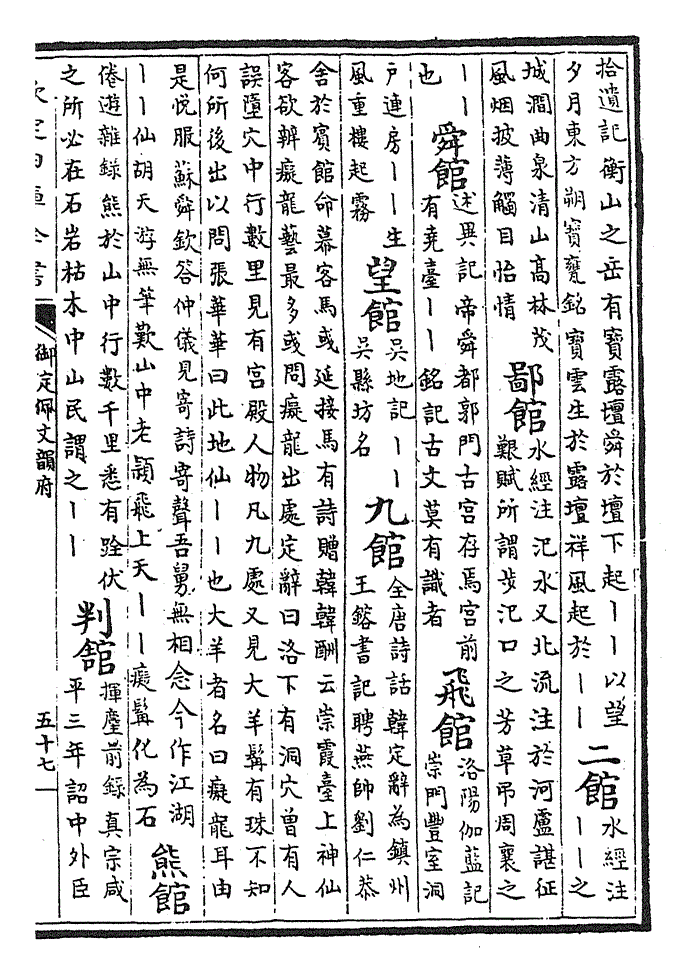 拾遺記衡山之岳有寶露壇舜於壇下起丨丨以望
夕月東方朔寶甕銘寶雲生於露壇祥風起於丨丨
二館
水經注
丨丨之
城澗曲泉清山高林茂
風烟披薄觸目怡情
鄙館
水經注汜水又北流注於河盧諶征
艱賦所謂步汜口之芳草弔周襄之
丨丨
也
舜館
述異記帝舜都郭門古宮存焉宮前
有堯臺丨丨銘記古文莫有識者
飛館
洛陽伽藍記
崇門豐室洞
戶連房丨丨生
風重樓起霧
望館
吳地記丨丨
吳縣坊名
九館
全唐詩話韓定辭為鎮州
王鎔書記聘燕帥劉仁恭
舍於賓館命幕客馬或延接馬有詩贈韓韓酬云崇霞臺上神仙
客欲辨癡龍藝最多或問癡龍出處定辭曰洛下有洞穴曾有人
誤墮穴中行數里見有宮殿人物凡九處又見大羊髯有珠不知
何所後出以問張華華曰此地仙丨丨也大羊者名曰癡龍耳由
是悅服蘇舜欽答仲儀見寄詩寄聲吾舅無相念今作江湖
丨丨仙胡天游無筆歎山中老穎飛上天丨丨癡髯化為石
熊館
倦遊雜錄熊於山中行數千里悉有跧伏
之所必在石岩枯木中山民謂之丨丨
判館
揮麈前錄真宗咸
平三年詔中外臣
欽定四庫全書
御定佩文韻府
五十七